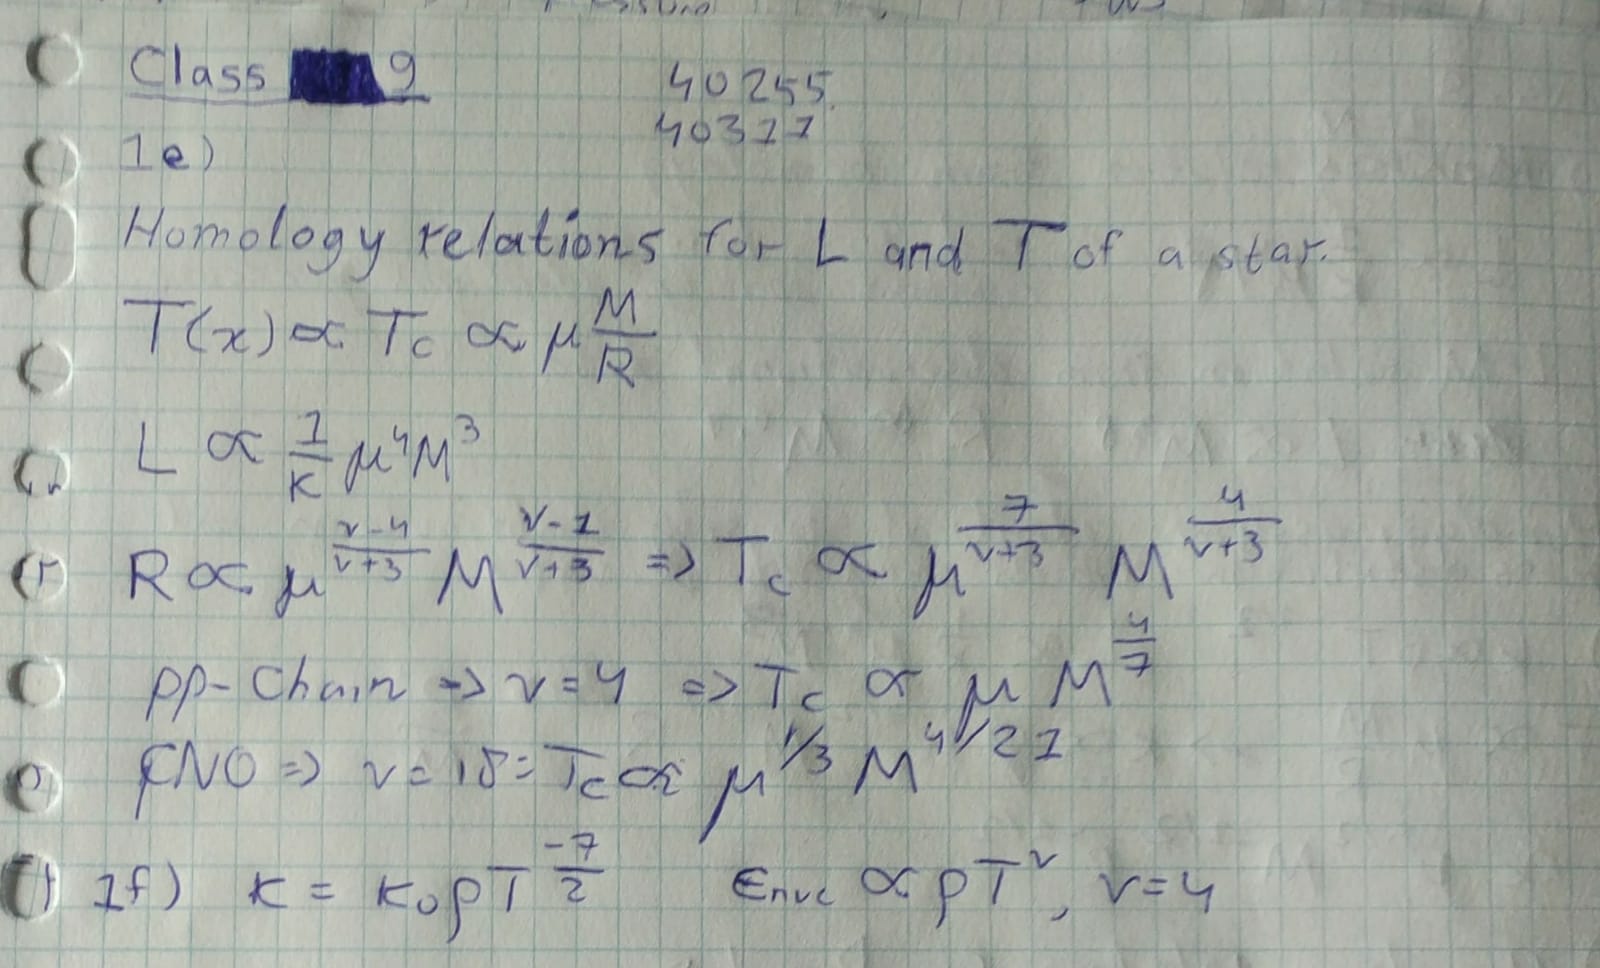 Class 9
40255
40377
1e)
Homology relations for L and T of a star.
T(x) ∝ T_c ∝ μ M/R
L ∝ 1/κ μ^4 M^3
R ∝ μ^((ν-4)/(ν+3)) M^((ν-1)/(ν+3)) => T_c ∝ μ^(7/(ν+3)) M^(4/(ν+3))
pp-Chain => ν=4 => T_c ∝ μ M^(4/7)
CNO => ν=18= T_c ∝ μ^(1/3) M^(4/21)
1f) κ = κ_0 ρ T^(-7/2) ϵ_nuc ∝ ρT^ν, ν=4